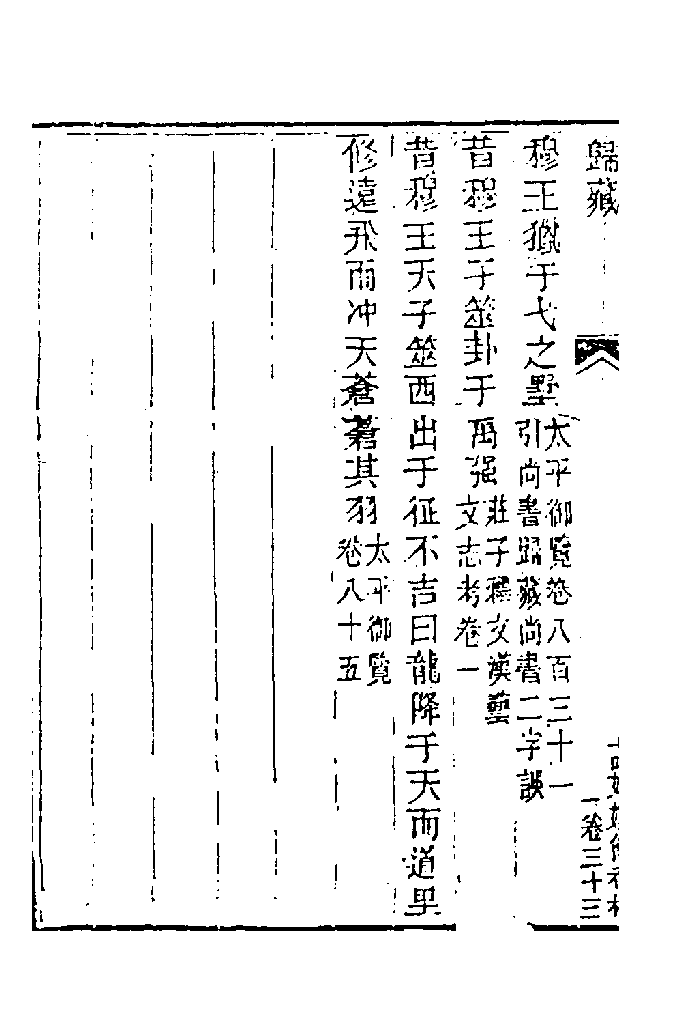 歸藏
穆王獵于弋之墅太平御覽卷八百三十一
引尚書歸藏尚書二字誤
昔穆王子筮卦于禺强莊子釋文漢藝
文志考卷一
昔穆王天子筮西出于征不吉曰龍降于天而道里
修遠飛而冲天蒼蒼其羽太平御覽
卷八十五
卷三十三